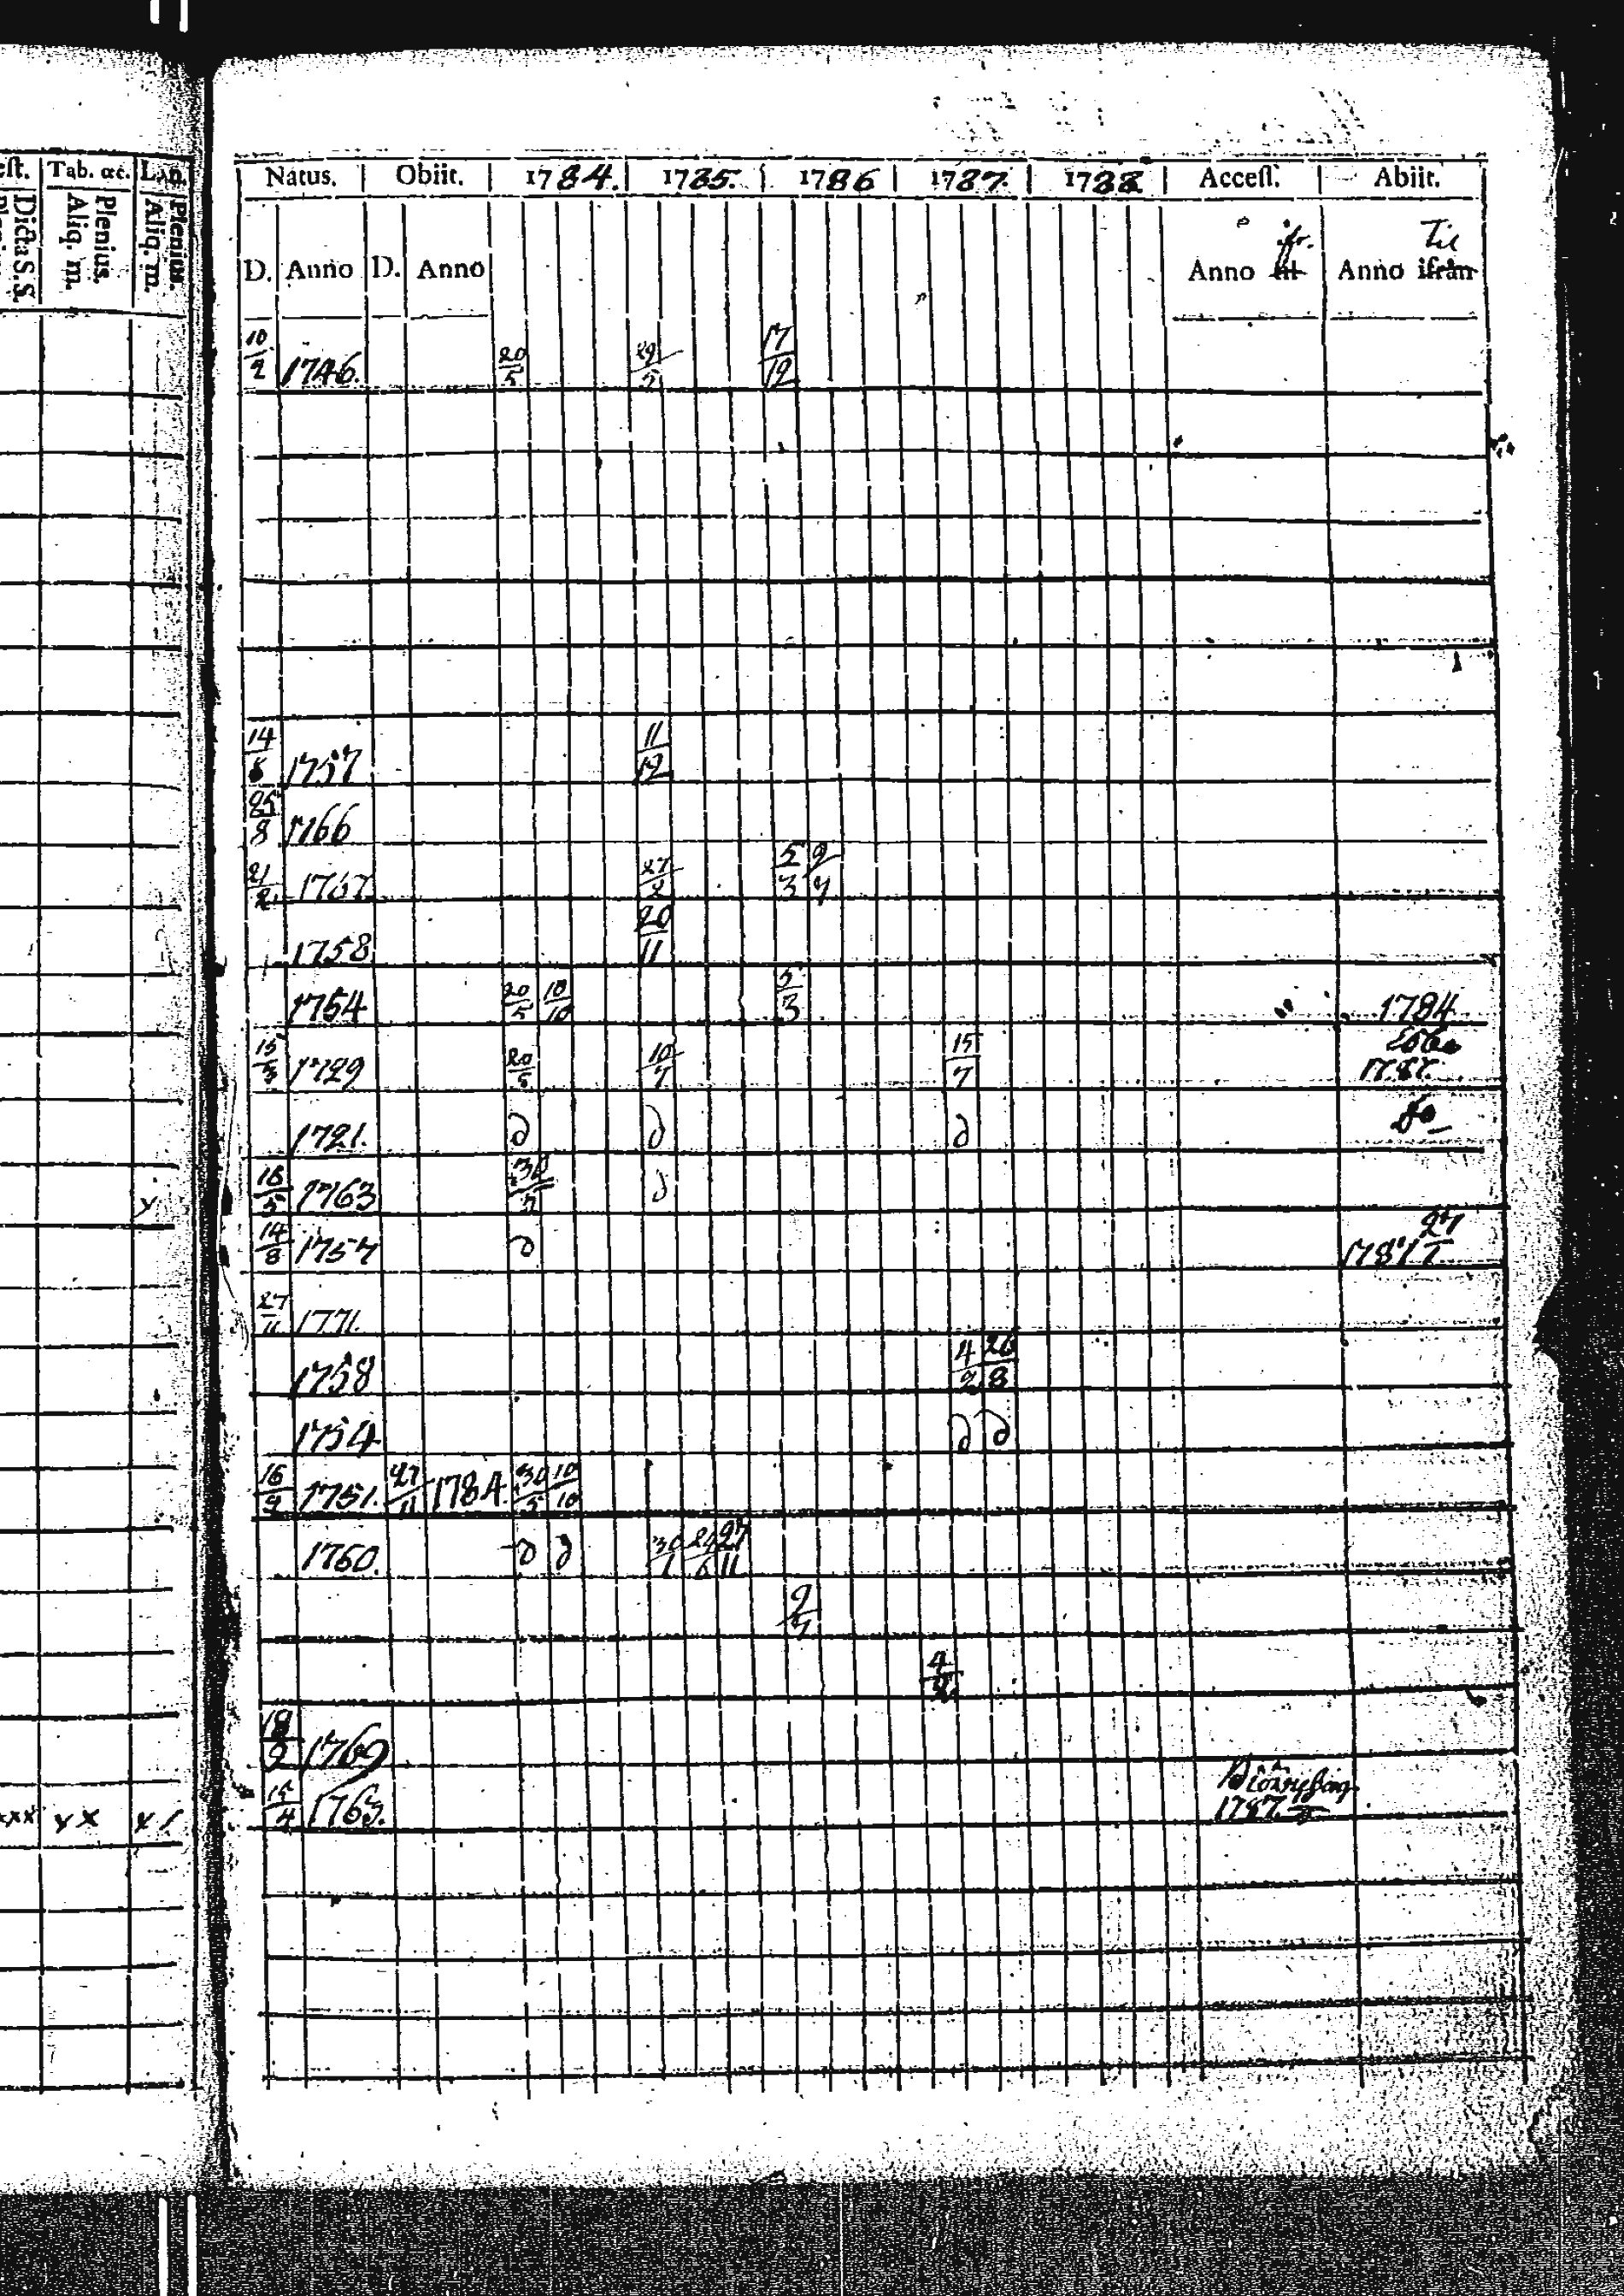 est. Tab. œc. Lan.
Dicta S.S. Plenius. Aliq. m. Plenius. Aliq. m.
Natus. Obiit. 1784. 1785. 1786 1787. 1788. Accest. Abiit.
D. Anno D. Anno Anno til ifr. Anno ifrån Til
10/2 1746. 20/5 17/12
14 1757 11/12
25/8 1766
21/2 1767 5/3 2/7
1758 20/11
1754 20/5 10/10 5/3 1784
15 1729 20/5 10/7 15/7 1787.
1721. d d d do
16/5 1763 d
14/8 1757 d 1787
27/11 1771.
1758 4/2 26/8
1754 d d
16 1751. 27/11 1784. 30/5 10/10
1760. d d 30/1 27/11
2/7
4
18/9 1769
15/4 1763. 1787.
xxx x x x /